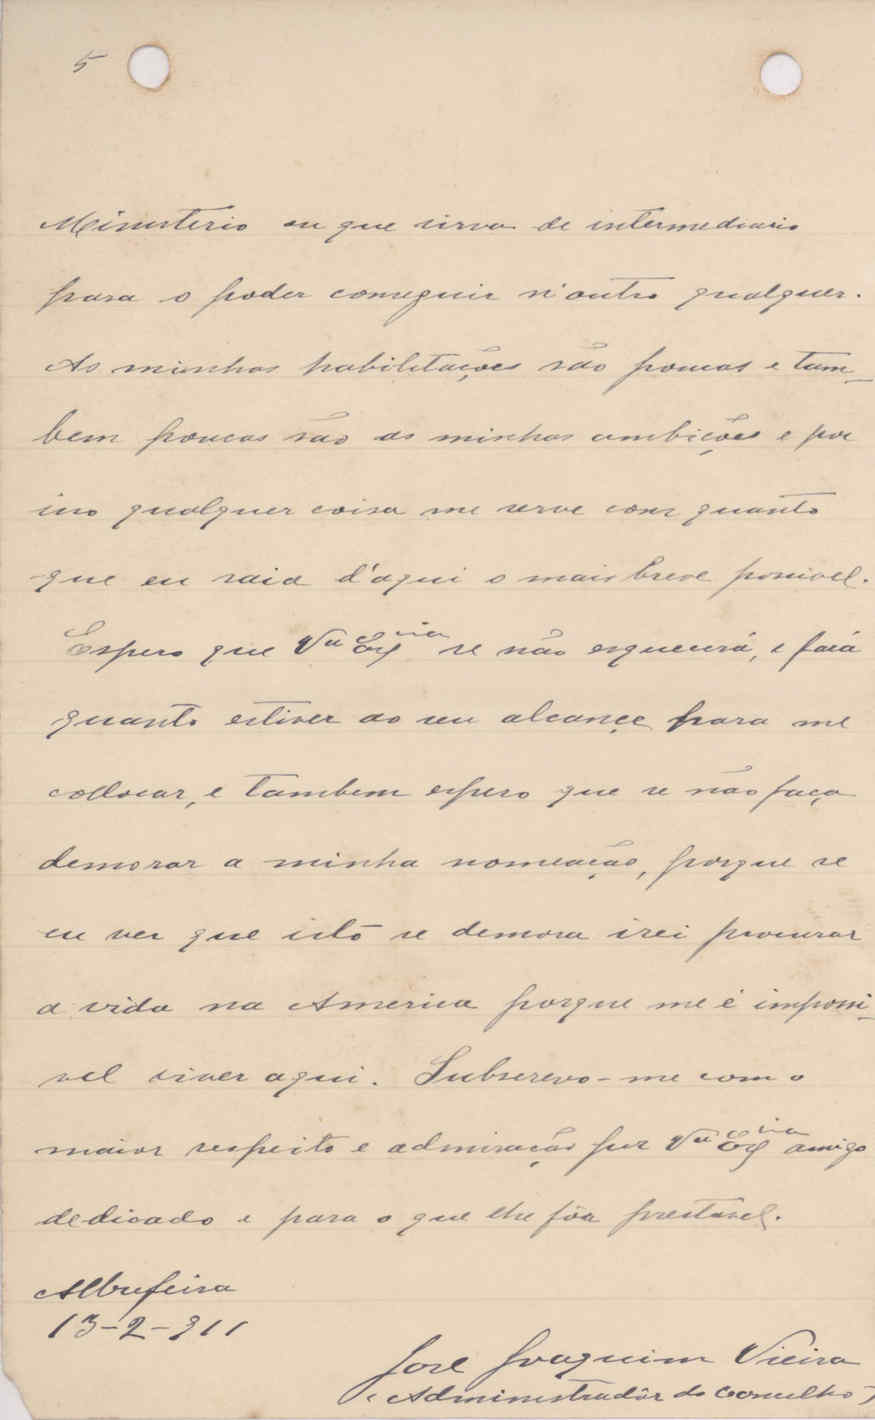 5
Ministerio ou que sirva de intermediario
para o poder conseguir n'outro qualquer.
As minhas habilitações são poucas e tam-
bem poucas são as minhas ambições e por
isso qualquer coisa me serve com quanto
que eu saia d'aqui o mais breve possivel.
Espero que Va Exia se não esquecerá, e fará
quanto estiver ao seu alcançe para me
collocar, e tambem espero que se não faça
demorar a minha nomeação, porque se
eu ver que isto se demora irei procurar
a vida na America porque me é impossi-
vel viver aqui. Subscrevo-me com o
maior respeito e admiração por Va Exia amigo
dedicado e para o que lhe fôr prestavel.
Albufeira
13-2-911
José Joaquim Vieira
(Administradôr do Concelho)